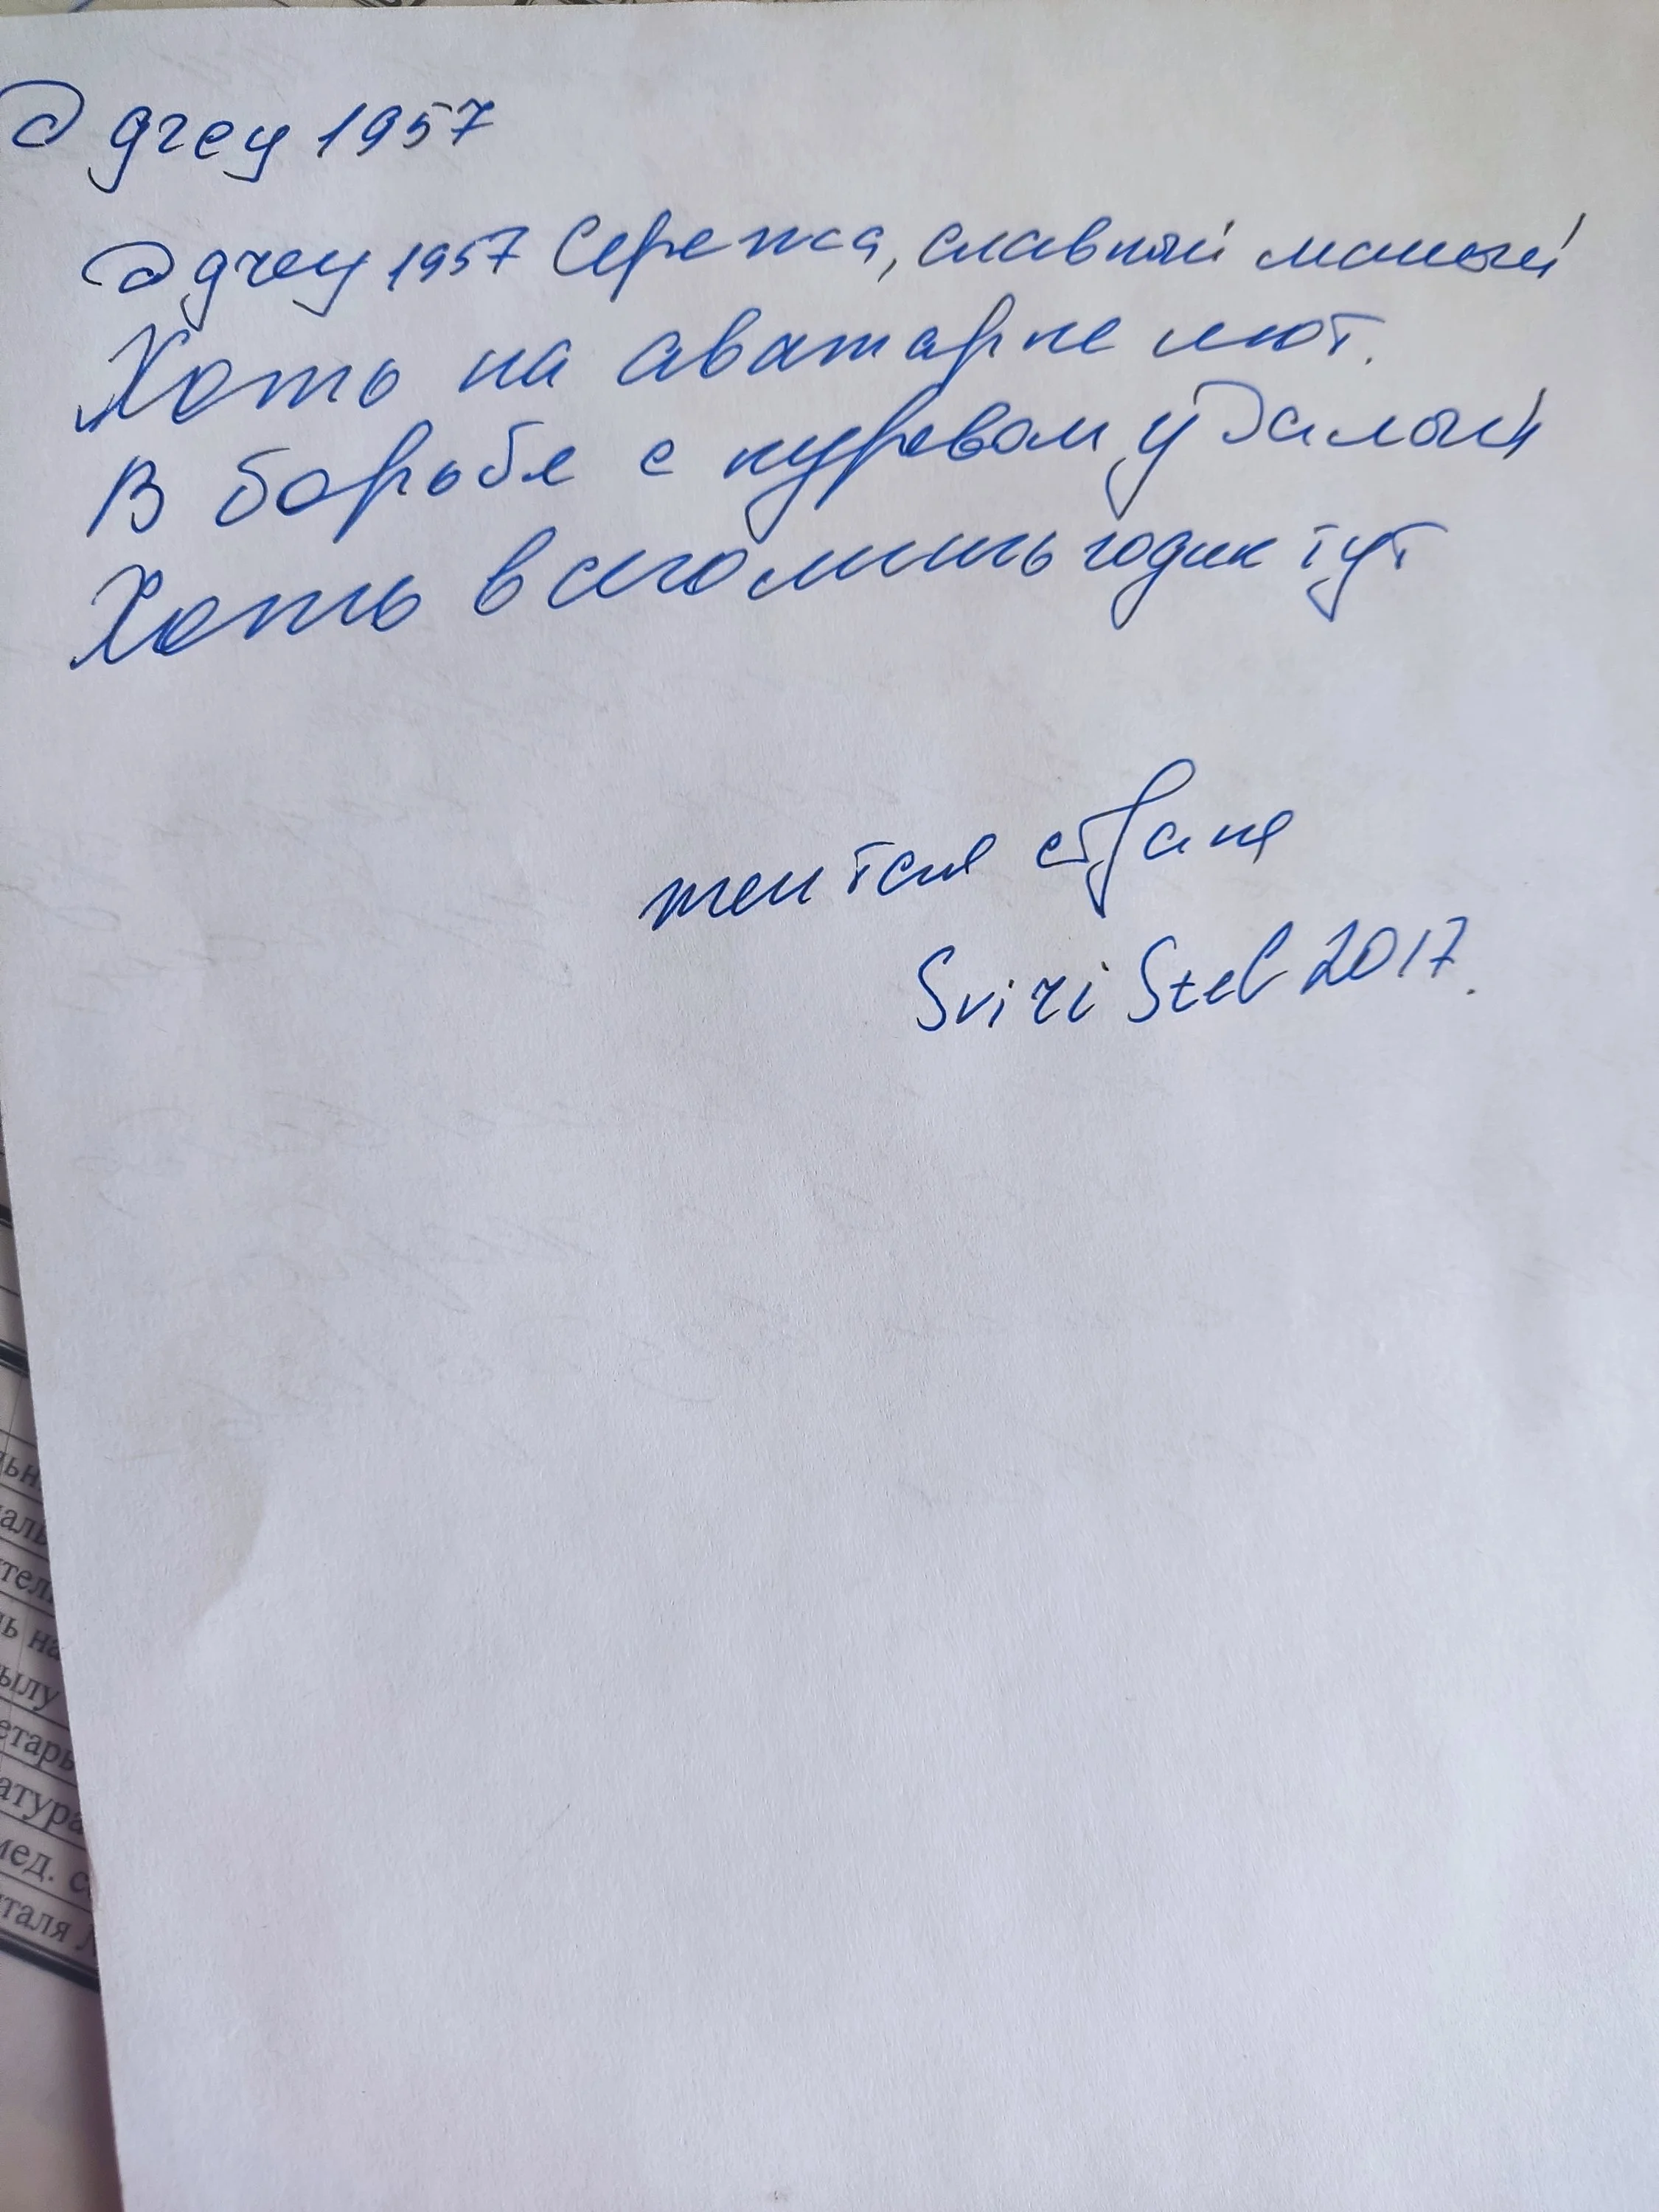 @ grey 1957
@ grey 1957 Сережа, славный малый
Хоть на аватарке лют.
В борьбе с куревом удалый
Хоть всего лишь годик тут
SviriStel 2017.
льн
аль
тел
ь на
ылу
етарь
атура
мед. с
италя